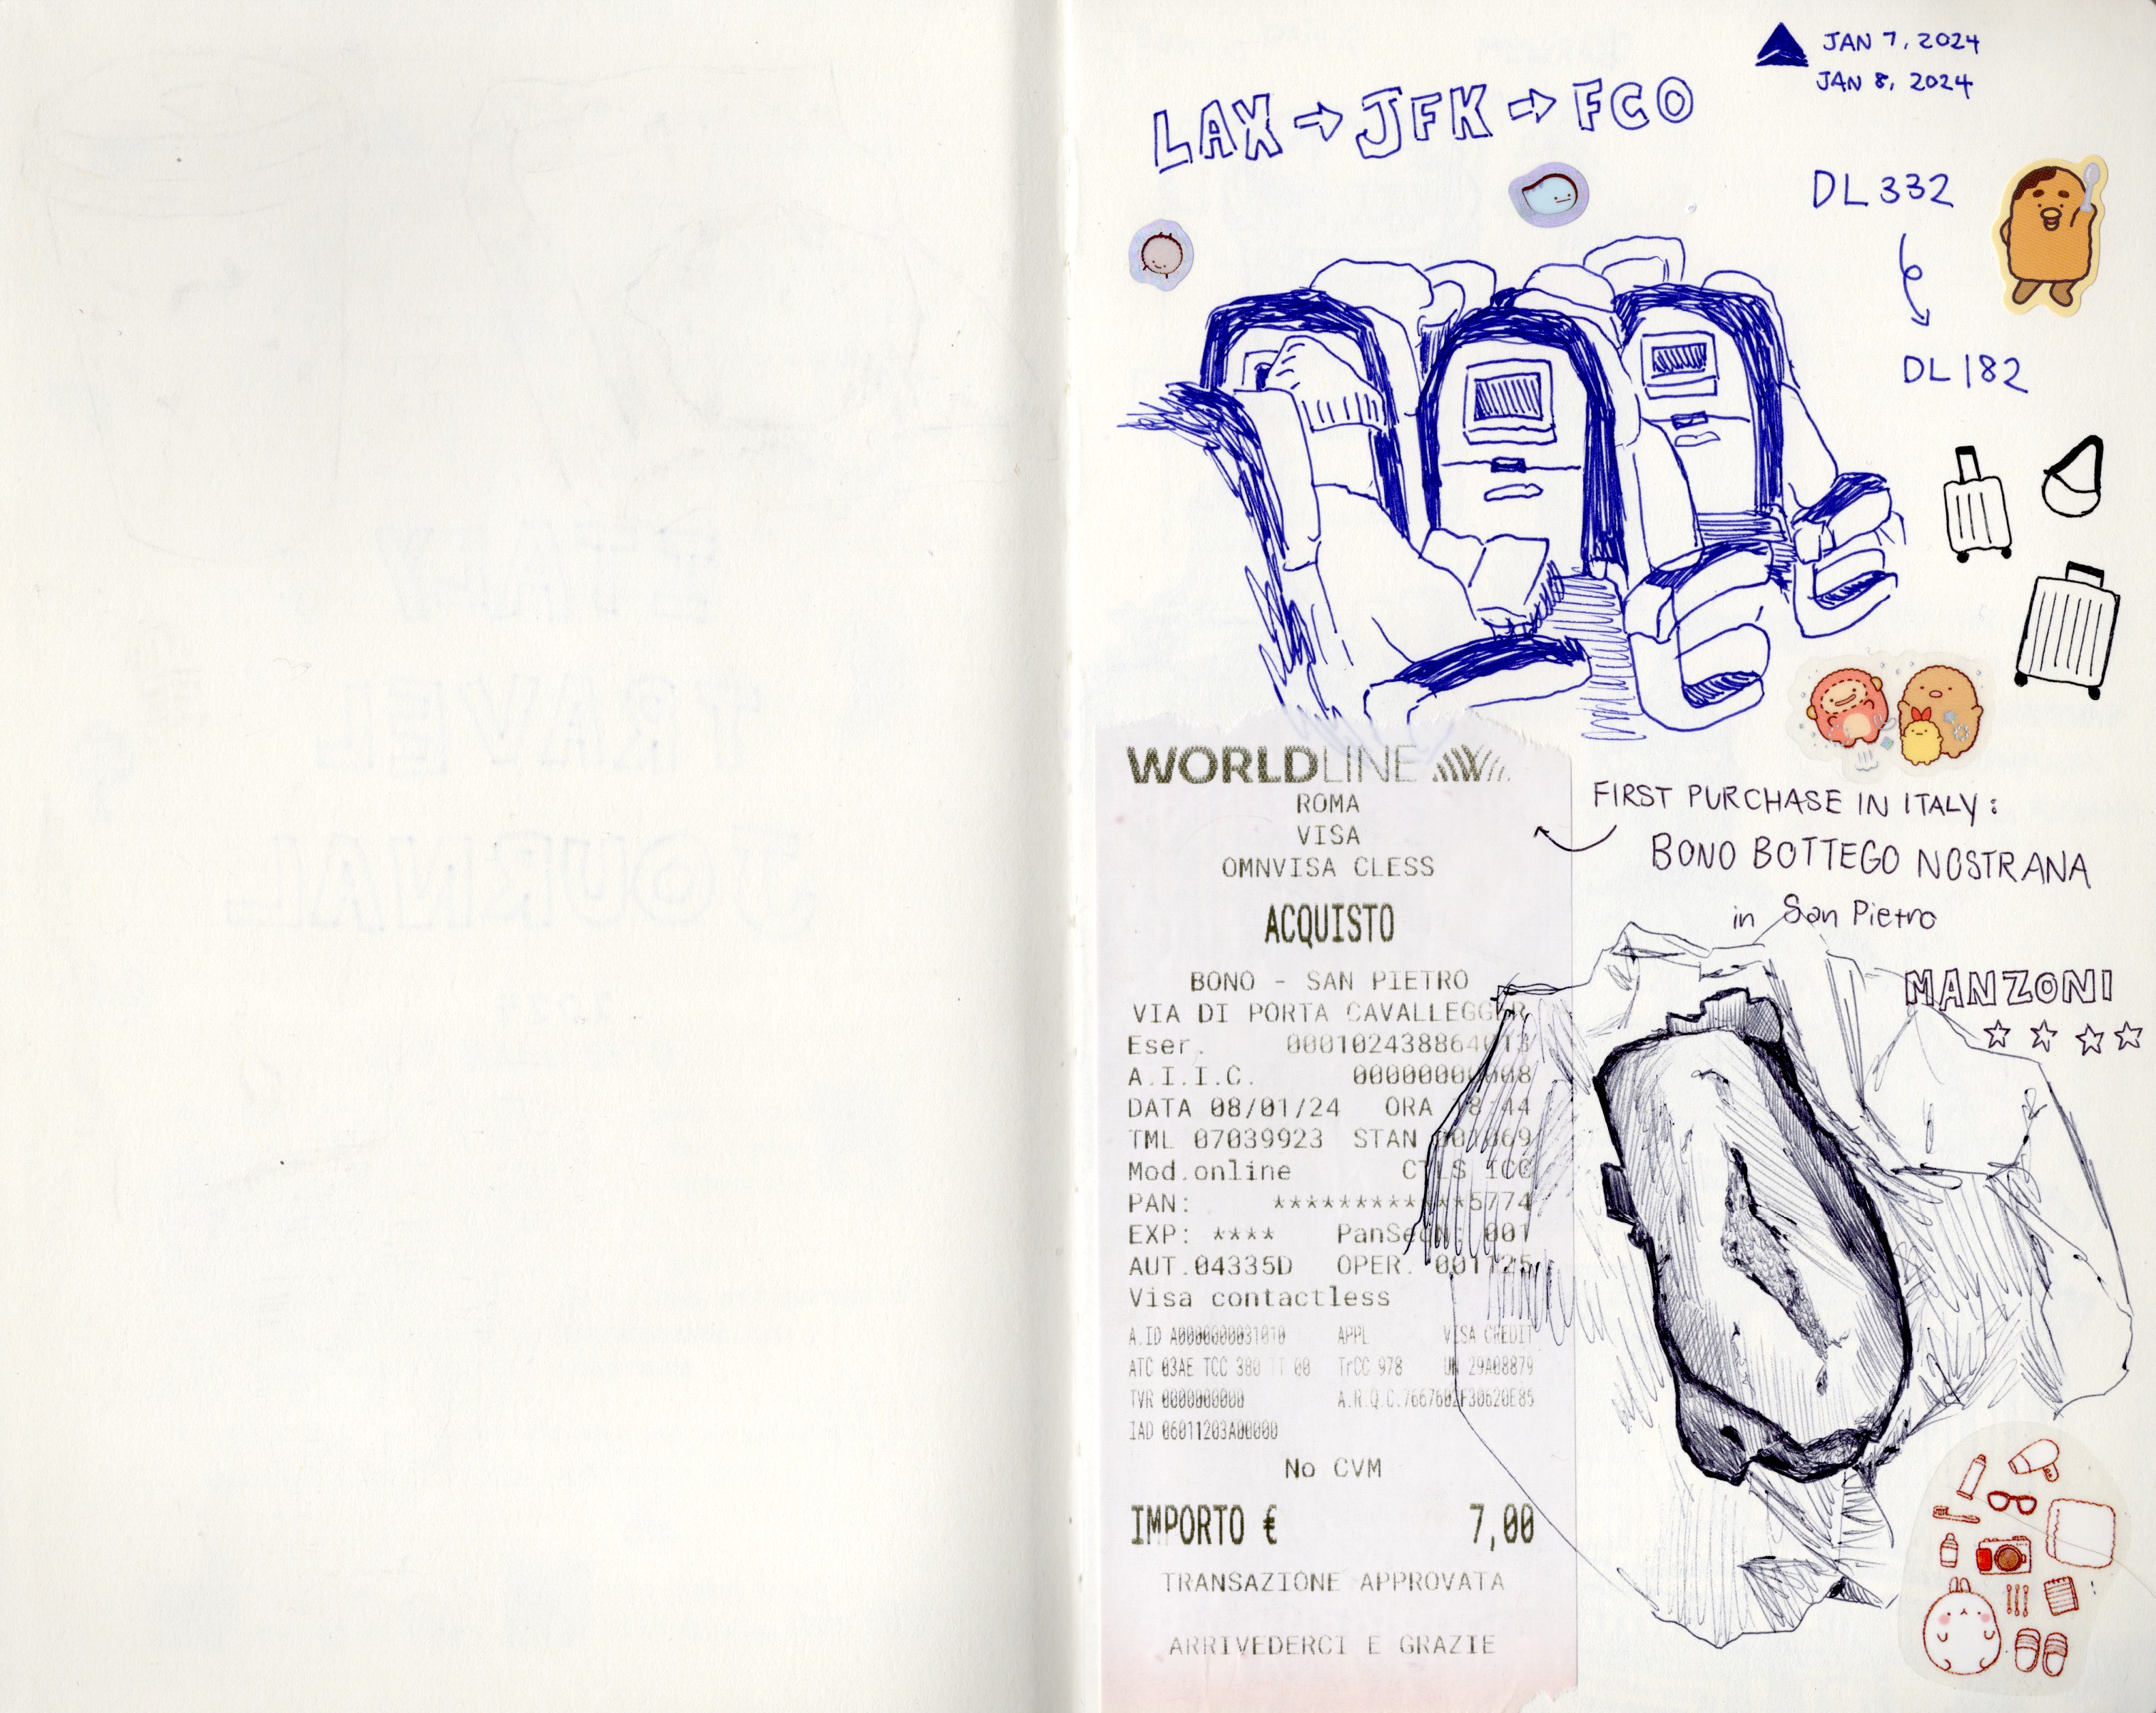 JAN 7, 2024
JAN 8, 2024
LAX → JFK → FCO
DL 332
DL 182
WORLDLINE
ROMA
VISA
OMNVISA CLESS
ACQUISTO
BONO - SAN PIETRO
VIA DI PORTA CAVALLEGGER
Eser. 000102438864013
A.I.I.C. 00000000008
DATA 08/01/24 ORA 18:44
TML 07039923 STAN
Mod.online CTLS ICC
PAN: ************5774
EXP: **** PanSeqN: 001
AUT.04335D OPER. 001125
Visa contactless
A.ID A0000000031010 APPL VISA CREDIT
ATC 03AE TCC 380 TT 00 TrCC 978 UN 29A08879
TVR 0000000000 A.R.Q.C.7667602F30620E85
IAD 06011203A00000
No CVM
IMPORTO € 7,00
TRANSAZIONE APPROVATA
ARRIVEDERCI E GRAZIE
FIRST PURCHASE IN ITALY:
BONO BOTTEGO NOSTRANA
in San Pietro
MANZONI
☆ ☆ ☆ ☆